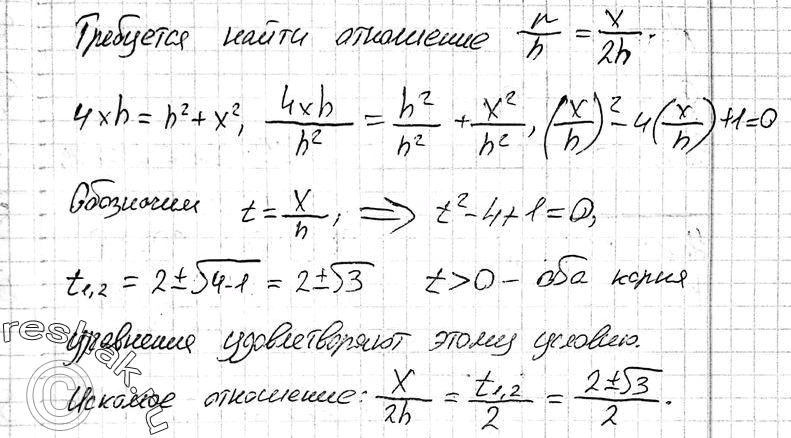 Требуется найти отношение r/h = x/2h.
4xh = h² + x², 4xh/h² = h²/h² + x²/h², (x/h)² - 4(x/h) + 1 = 0
Обозначим t = x/h, ⟹ t² - 4 + 1 = 0,
t₁,₂ = 2 ± √4-1 = 2 ± √3 t > 0 - оба корня
уравнения удовлетворяют этому условию.
Искомое отношение: x/2h = t₁,₂/2 = 2±√3/2.
reshak.ru